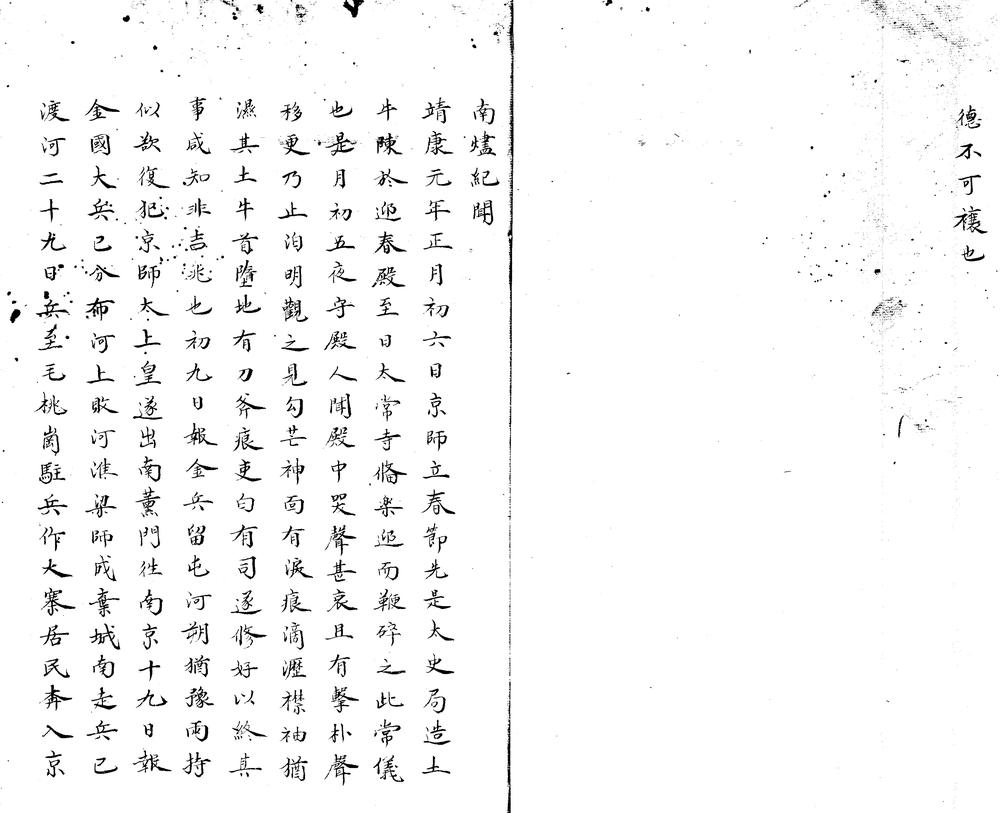 德不可禳也
南燼紀聞
靖康元年正月初六日京師立春節先是太史局造土
牛陳於迎春殿至日太常寺俻楽迎而鞭碎之此常儀
也是月初五夜守殿人聞殿中哭聲甚哀且有擊朴聲
移更乃止洎明觀之見勾芒神面有淚痕滴瀝襟袖猶
濕其土牛首墮地有刀斧痕吏白有司遂修好以終其
事咸知非吉兆也初九日報金兵留屯河朔猶豫両持
似欲復犯京師太上皇遂出南薰門徃南京十九日報
金國大兵已分布河上敗河淮梁師成棄城南走兵已
渡河二十九日兵至毛桃崗駐兵作大寨居民奔入京